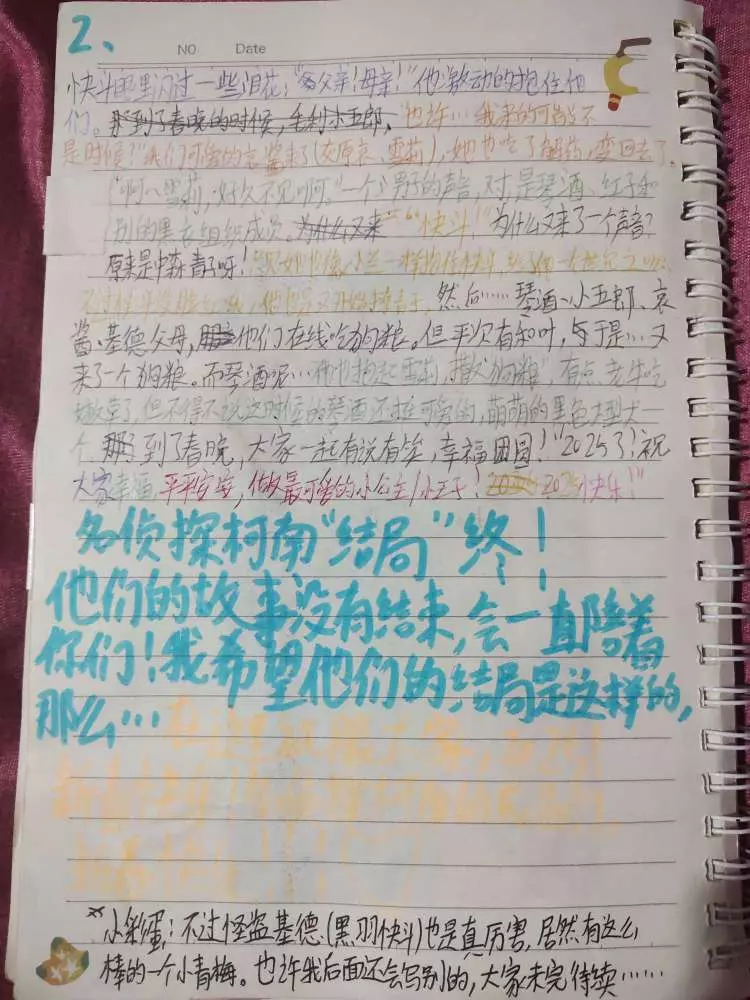 2、
NO Date
快斗眼里闪过一些泪花："父亲！母亲！"他激动的抱住他
们。那到了春晚的时候，毛利小五郎、也许…我来的可能不
是时候？"我们可爱的哀酱来了（灰原哀、雪莉），她也吃了解药，变回去了。
"啊~雪莉，好久不见啊。"一个男子的声音，对，是琴酒、红子和
别的黑衣组织成员。为什么又来"快斗！"为什么又来了一个声音？
原来是中森青子呀！只她也像小兰一样抱住快斗，
然后……琴酒、小五郎、哀
酱、基德父母，他们在线吃狗粮。但平次有和叶，于是…又
来了一个狗粮。而琴酒呢…他也抱起雪莉，撒"狗粮"，有点老牛吃
嫩草了，但不得不说这时候的琴酒还挺可爱的，萌萌的黑色大型犬一
个 到了春晚，大家一起有说有笑，幸福团圆！"2025了！祝
大家幸福，平平安安，做最可爱的小公主/小王子！2025快乐！"
名侦探柯南"结局"终！
他们的故事没有结束，会一直陪着
你们！我希望他们的结局是这样的，
那么…
在这里祝愿大家，
*小彩蛋：不过怪盗基德（黑羽快斗）也是真厉害，居然有这么
棒的一个小青梅。也许我后面还会写别的，大家未完待续……